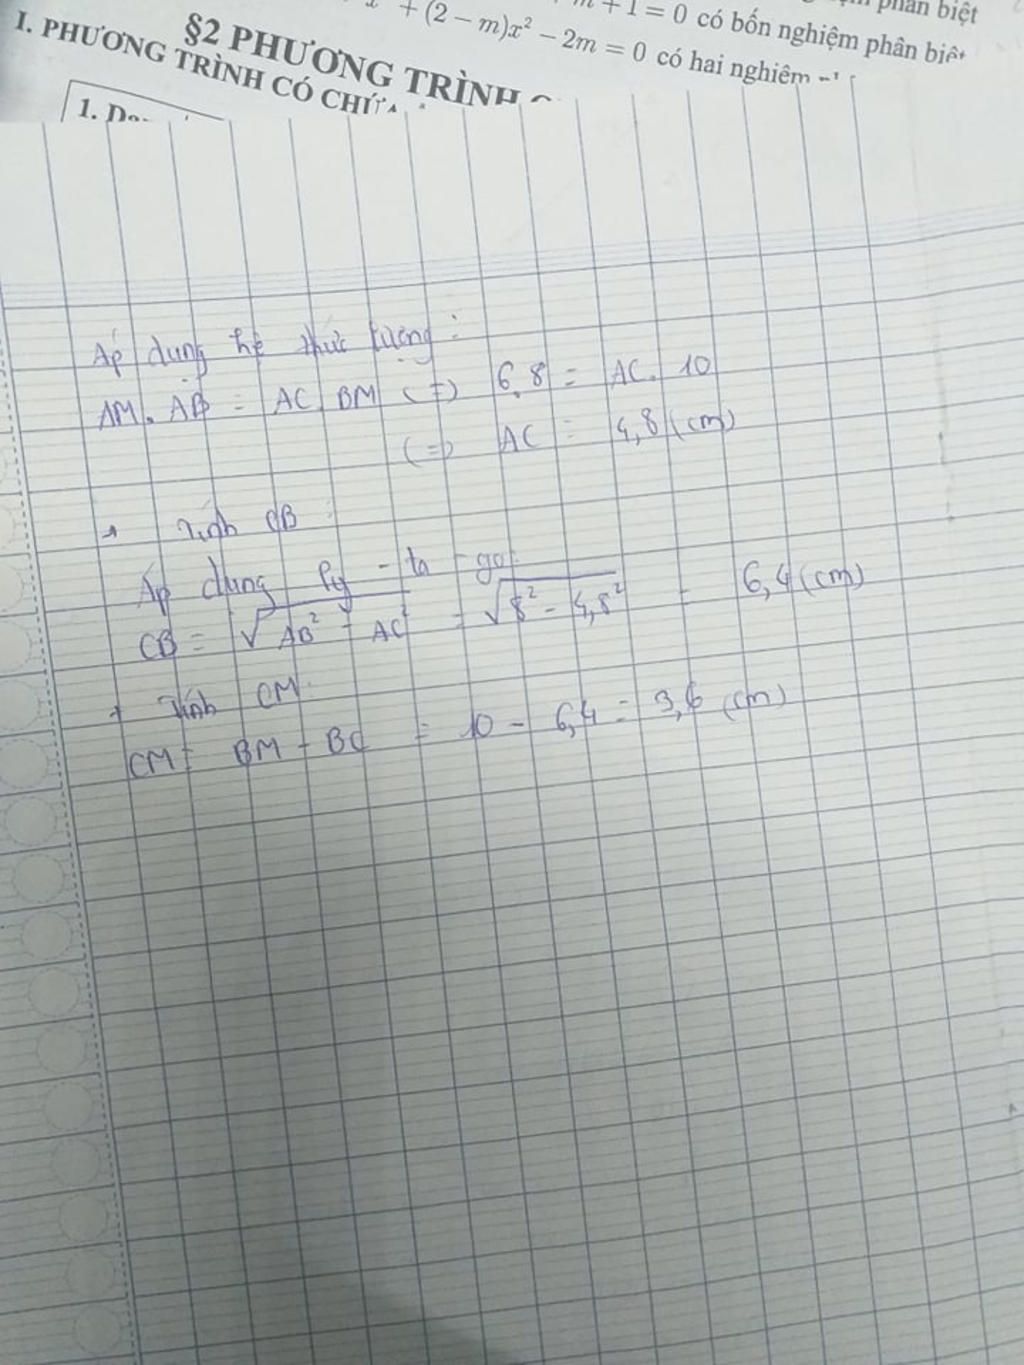 phân biệt
m + 1 = 0 có bốn nghiệm phân biệt
+ (2 − m)x² − 2m = 0 có hai nghiệm
§2 PHƯƠNG TRÌNH
I. PHƯƠNG TRÌNH CÓ CHỨA
1.
Áp dụng hệ thức lượng :
AM . AB = AC . BM (=) 6.8 = AC . 10
(=) AC = 4,8 (cm)
+ Tính CB :
Áp dụng Py - ta - go:
CB = √AB² - AC² = √8² - 4,8² = 6,4 (cm)
+ Tính CM:
CM = BM - BC = 10 - 6,4 = 3,6 (cm)